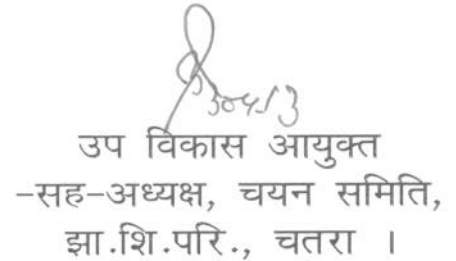 उप विकास आयुक्त
-सह-अध्यक्ष, चयन समिति,
झा.शि.परि., चतरा ।